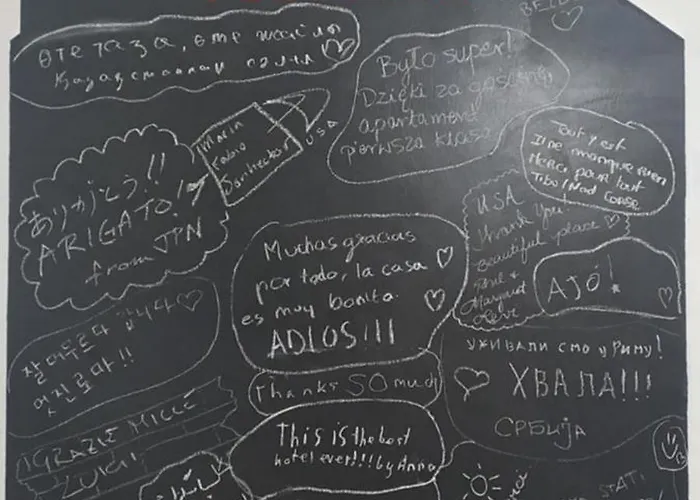 өте таза, өте
BELG
Było super!
Dzięki za gościnę,
apartament
pierwsza klasa
Maria
Fabio
USA
Tout y est
Il ne manque rien
Merci pour tout
Tibo/Nad Corse
ありがとう!!
ARIGATO!!
from JPN
USA
Thank you!
beautiful place
Margaret
AJÓ!
Muchas gracias
por todo, la casa
es muy bonita.
ADIOS!!!
잘 머무르다 갑니다
멋진 로마!!
уживали смо у Риму!
ХВАЛА!!!
СРБИЈА
Thanks SO much
GRAZIE MILLE
LUIGI
This is the best
hotel ever!!! by Anna